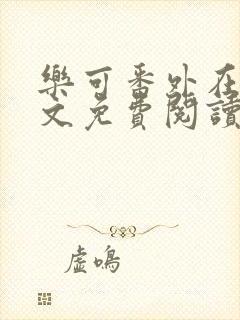 樂可番外在
文免費閱讀
虛鳴